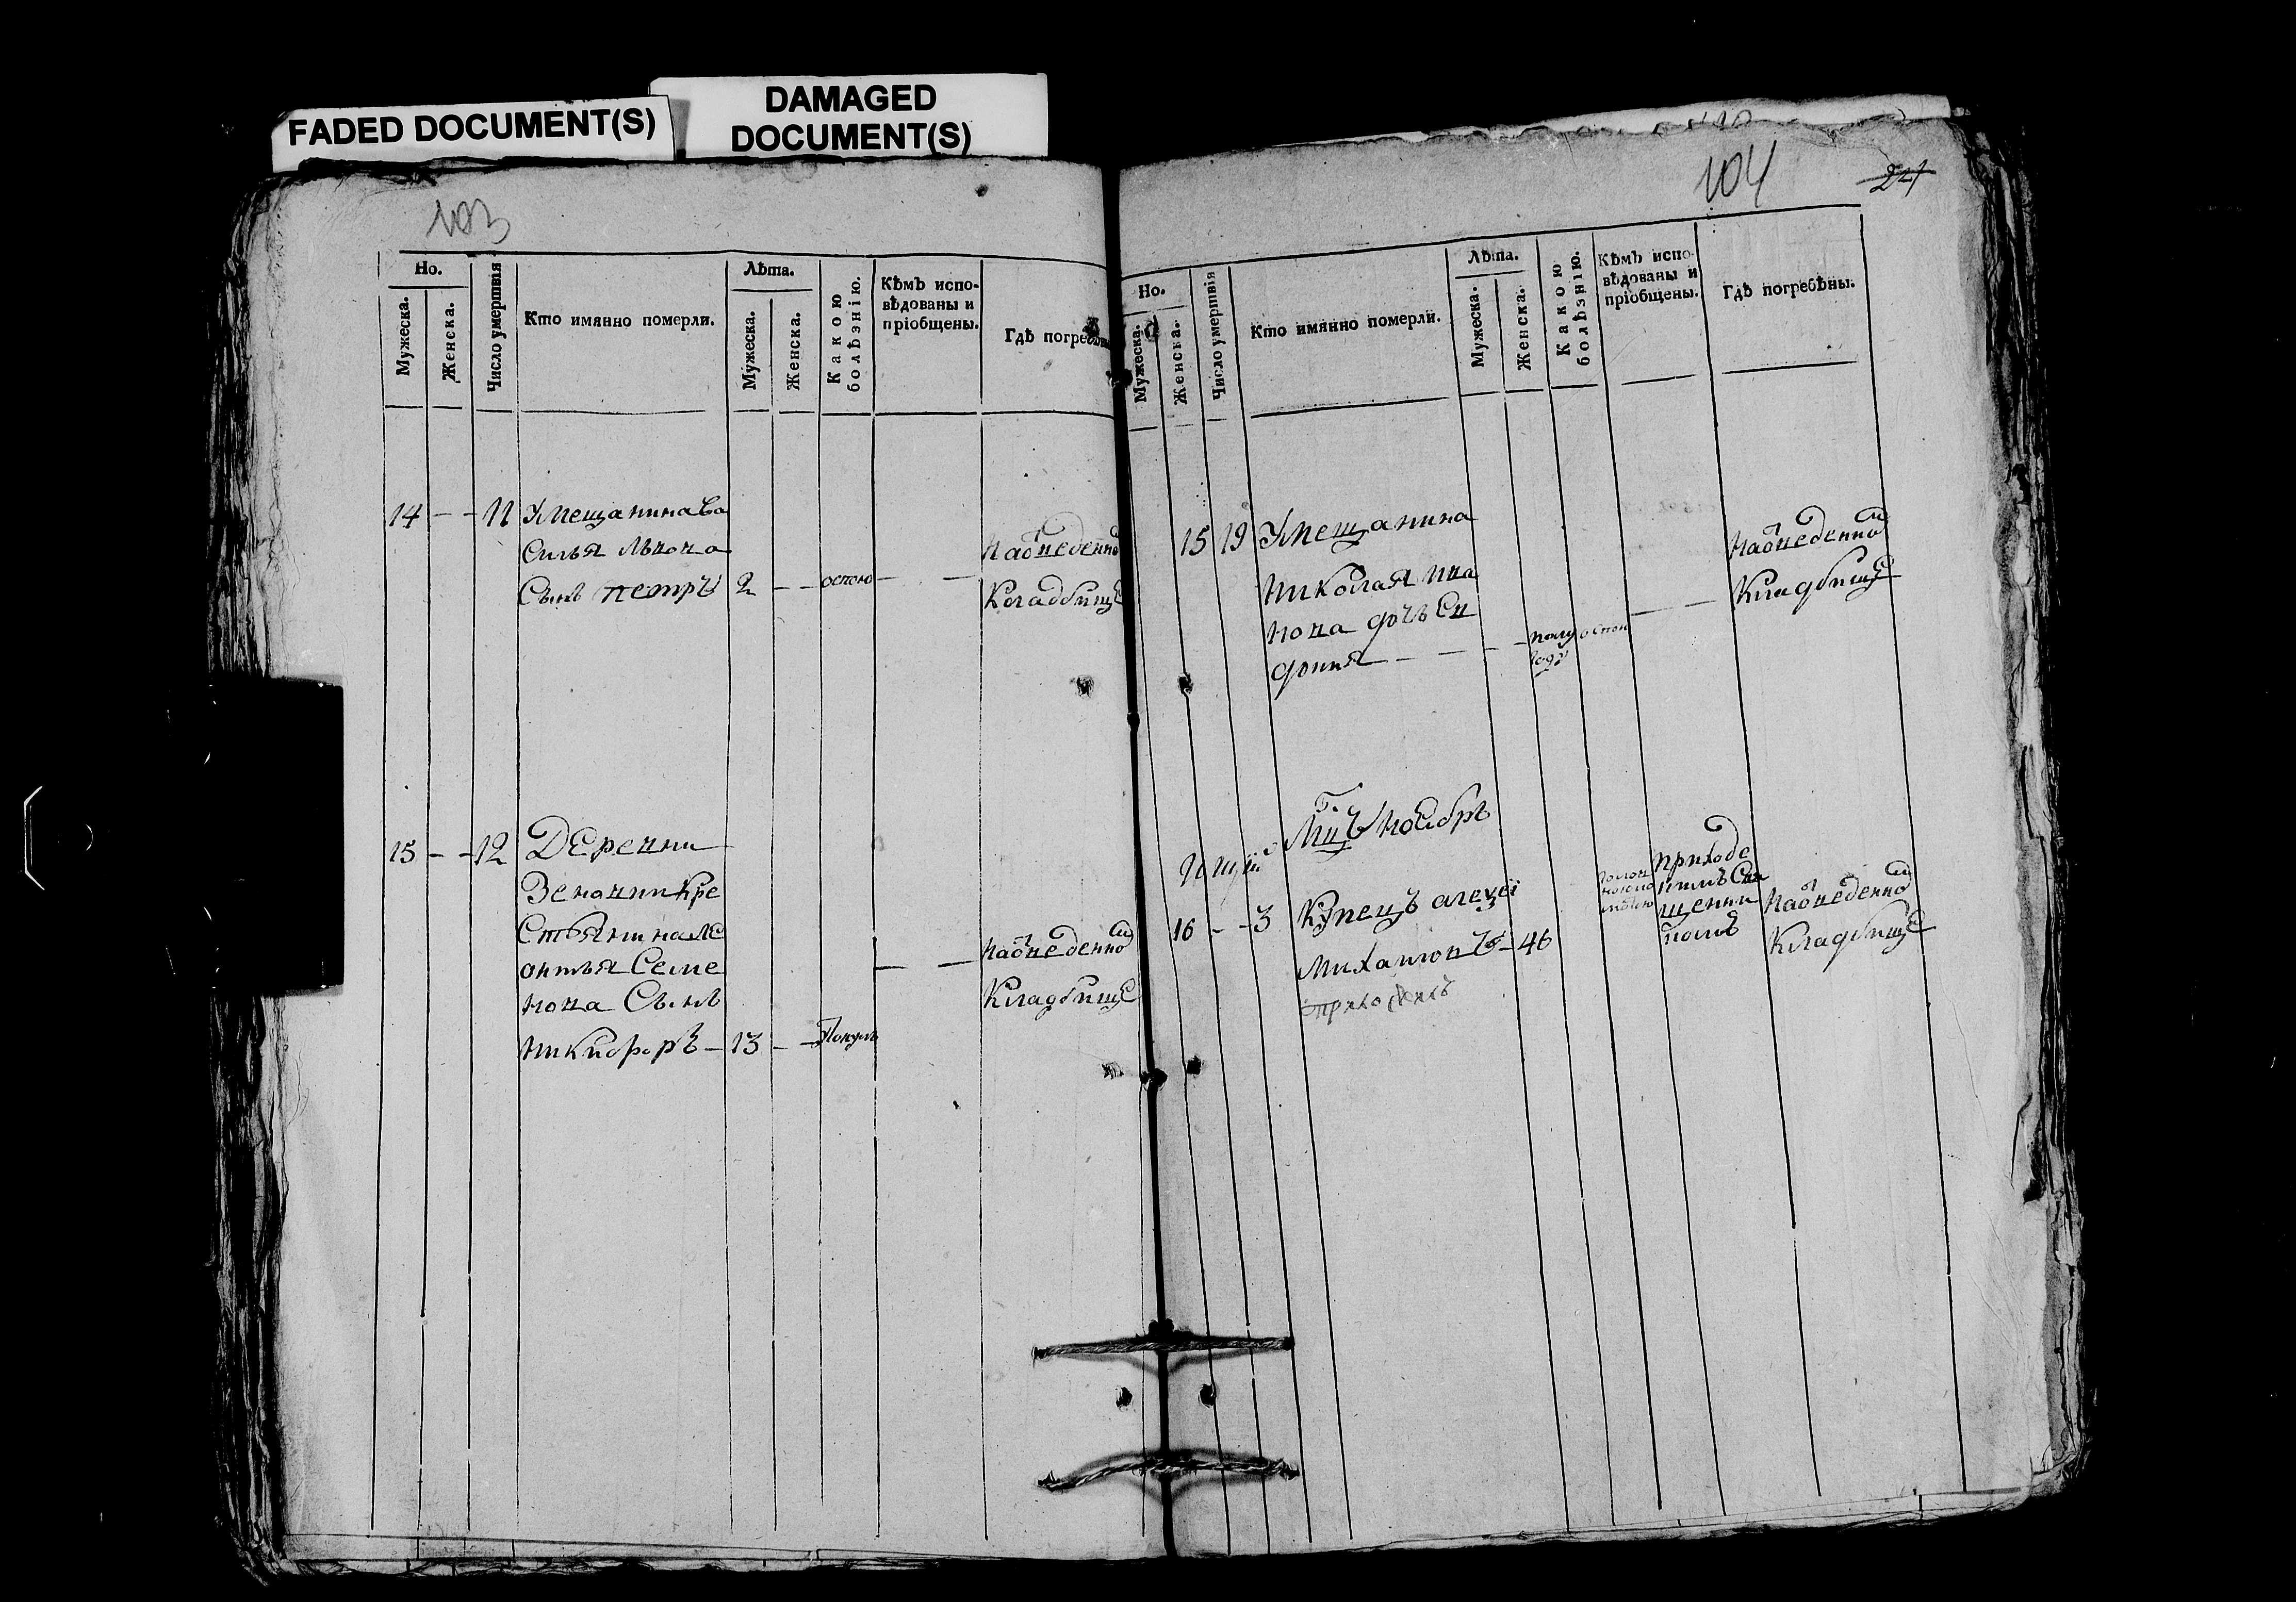 FADED DOCUMENT(S)
DAMAGED
DOCUMENT(S)
103
Но.
Мужеска.
Женска.
Число умертвія
Кто имянно померли.
Лѣта.
Мужеска.
Женска.
Какою
болѣзнію.
Кѣмъ испо-
вѣдованы и
пріобщены.
Гдѣ погребены
14 - - 11 Умещанина Ва
силья Львова
Сынъ петръ 2 - - оспою - -
наѡтведенно
Кладбище
15 - - 12 Деревни
Зеновки Кре
Стьянина Ле
онтья Семе
нова Сынъ
Никифоръ - 13 - -
- - наѡтведенно
Кладбище
104
24
Но.
Мужеска.
Женска.
Число умертвія
Кто имянно померли.
Лѣта.
Мужеска.
Женска.
Какою
болѣзнію.
Кѣмъ испо-
вѣдованы и
пріобщены.
Гдѣ погребѣны.
15 19 Умещанина
Николая ива
нова дочь Ев
докия - - - - полу оспою - -
года
наѡтведенном
Кладбище
Мцъ Ноебрь
16 - - 3 Купецъ алеѯеї
Михаиловъ - 46
приходс
кимъ Свя
щенни
комъ
наѡтведенном
Кладбище